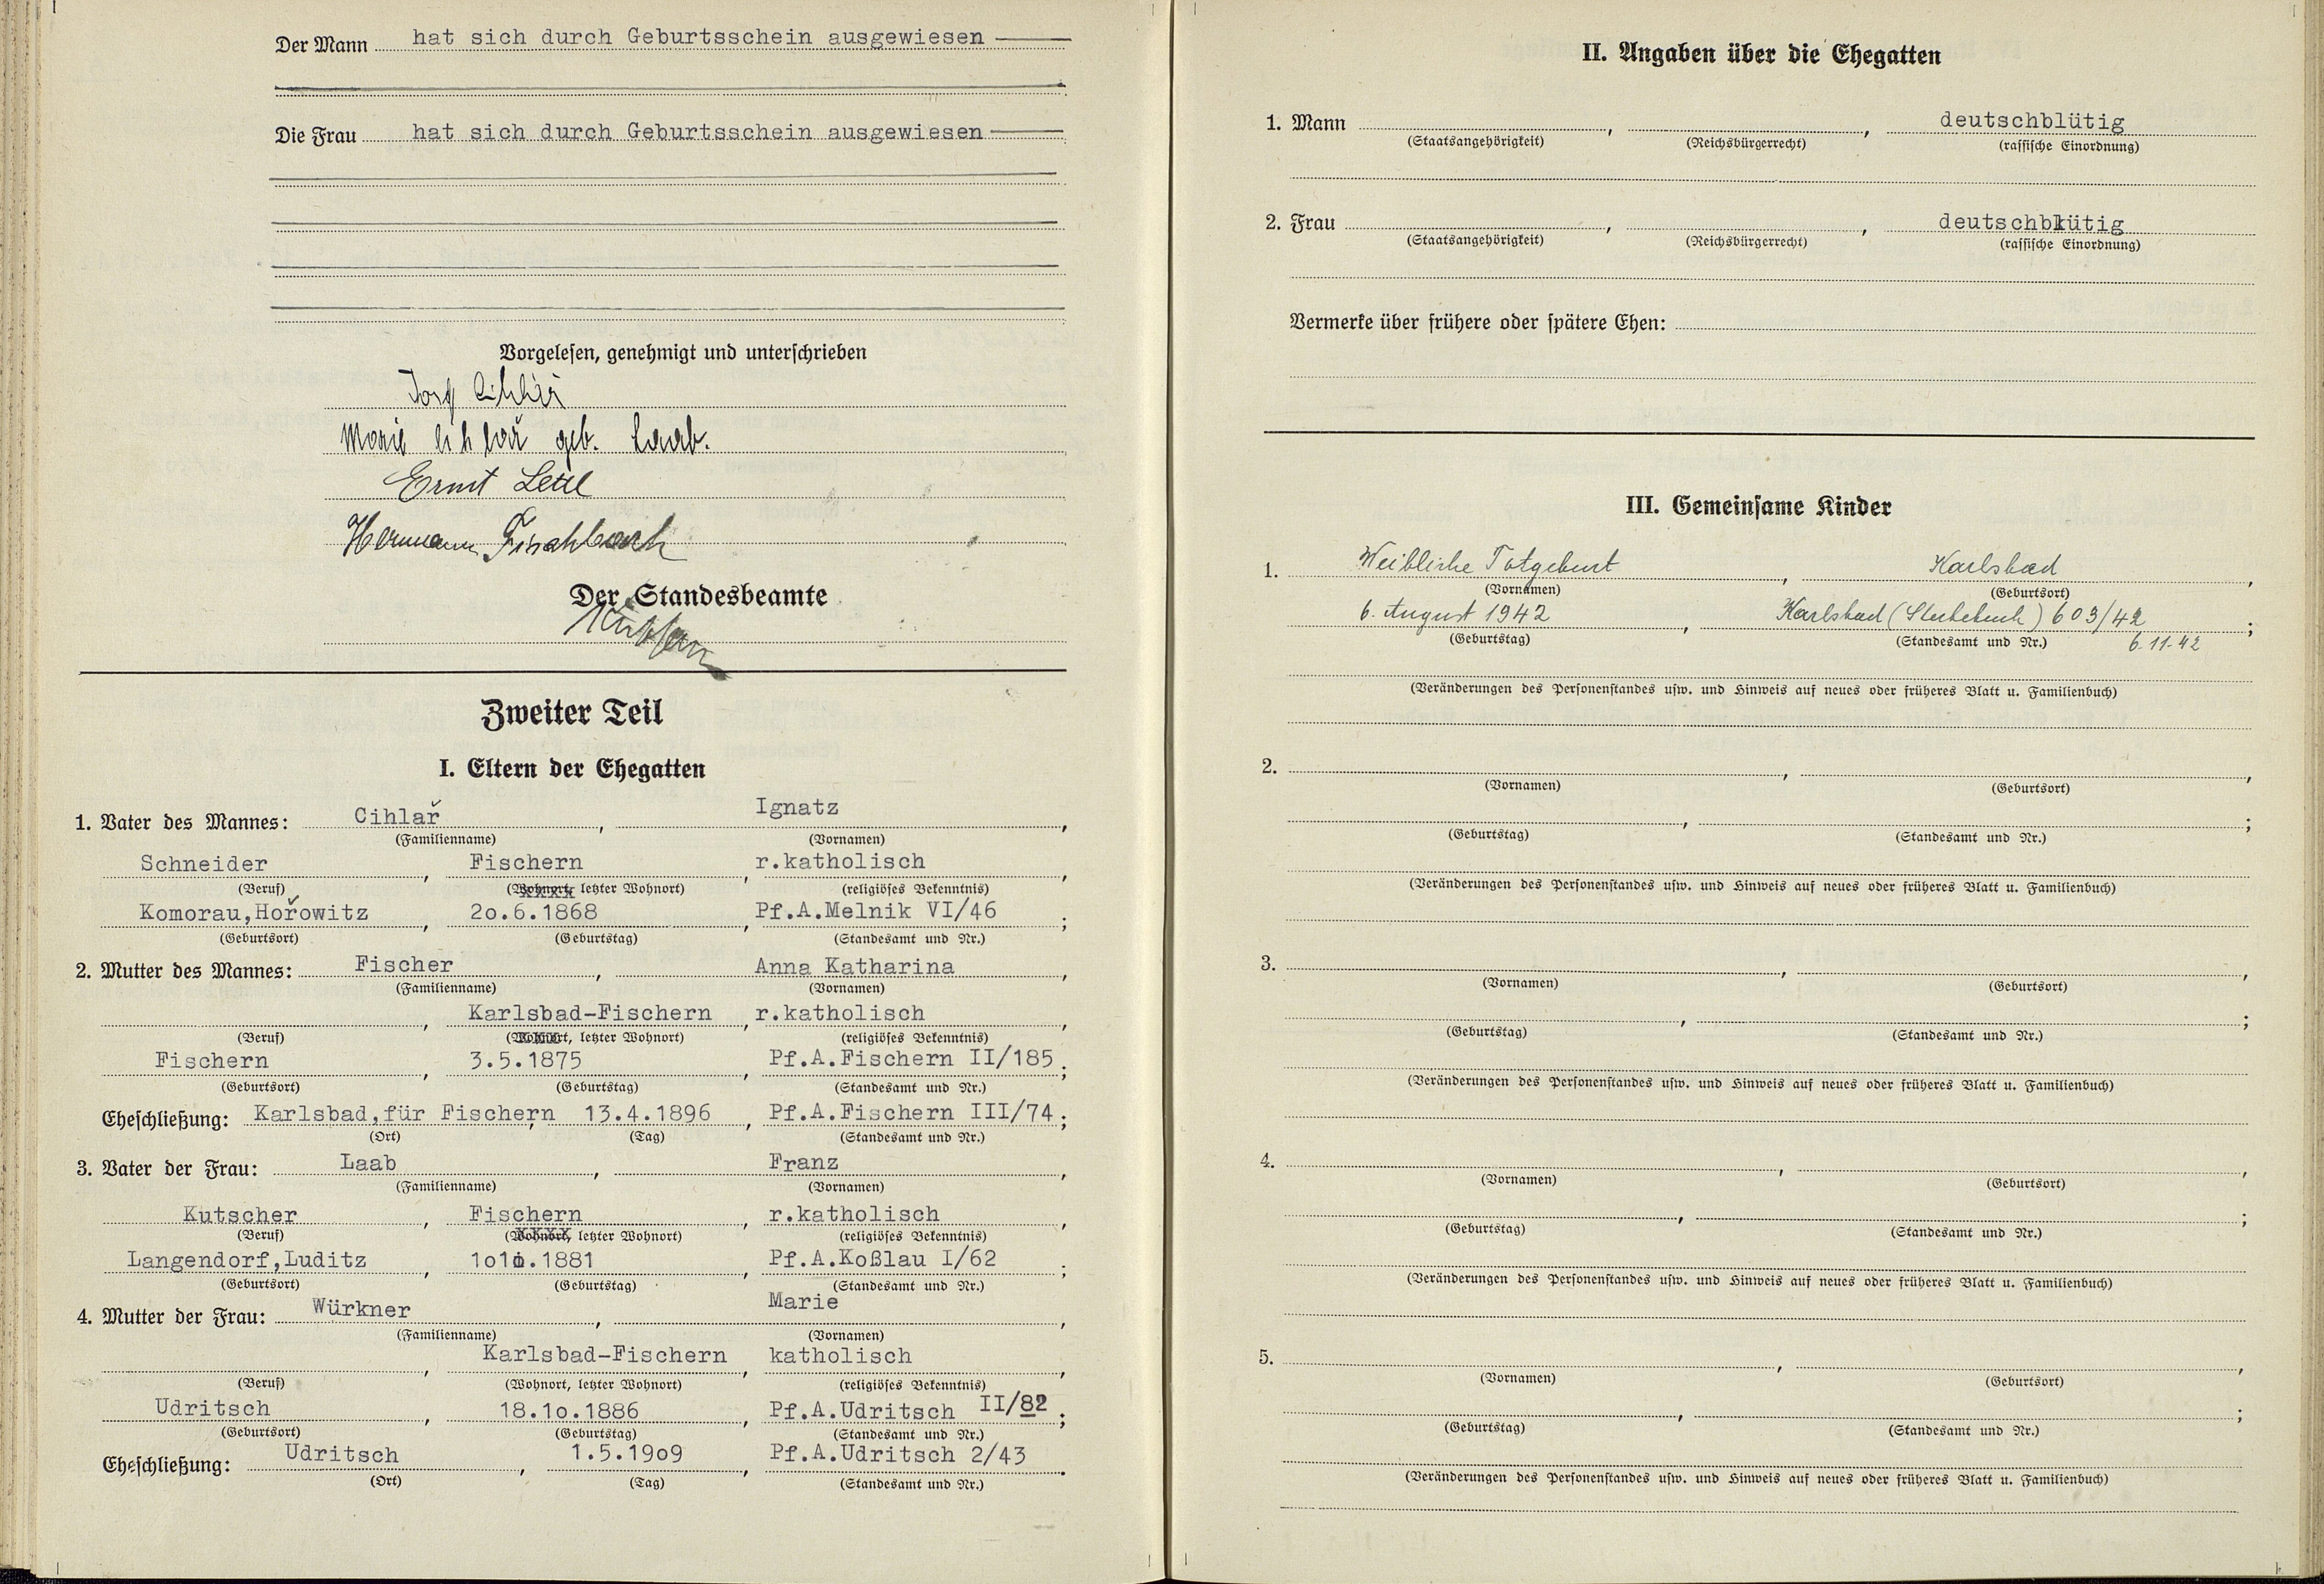 Der Mann hat sich durch Geburtsschein ausgewiesen
Die Frau hat sich durch Geburtsschein ausgewiesen
Vorgelesen, genehmigt und unterschrieben
Marie Cihlař geb. Laab.
Ernst
Hermann Fischbach
Der Standesbeamte
Zweiter Teil
I. Eltern der Ehegatten
1. Vater des Mannes: Cihlař, Ignatz,
(Familienname) (Vornamen)
Schneider, Fischern, r.katholisch,
(Beruf) (Wohnort, letzter Wohnort) (religiöses Bekenntnis)
Komorau,Hořowitz, 2o.6.1868, Pf.A.Melnik VI/46;
(Geburtsort) (Geburtstag) (Standesamt und Nr.)
2. Mutter des Mannes: Fischer, Anna Katharina,
(Familienname) (Vornamen)
, Karlsbad-Fischern, r.katholisch,
(Beruf) (Wohnort, letzter Wohnort) (religiöses Bekenntnis)
Fischern, 3.5.1875, Pf.A.Fischern II/185;
(Geburtsort) (Geburtstag) (Standesamt und Nr.)
Eheschließung: Karlsbad,für Fischern, 13.4.1896, Pf.A.Fischern III/74;
(Ort) (Tag) (Standesamt und Nr.)
3. Vater der Frau: Laab, Franz,
(Familienname) (Vornamen)
Kutscher, Fischern, r.katholisch,
(Beruf) (Wohnort, letzter Wohnort) (religiöses Bekenntnis)
Langendorf,Luditz, Pf.A.Koßlau I/62;
(Geburtsort) (Geburtstag) (Standesamt und Nr.)
4. Mutter der Frau: Würkner, Marie,
(Familienname) (Vornamen)
, Karlsbad-Fischern, katholisch,
(Beruf) (Wohnort, letzter Wohnort) (religiöses Bekenntnis)
Udritsch, 18.1o.1886, Pf.A.Udritsch II/82;
(Geburtsort) (Geburtstag) (Standesamt und Nr.)
Eheschließung: Udritsch, 1.5.19o9, Pf.A.Udritsch 2/43.
(Ort) (Tag) (Standesamt und Nr.)
II. Angaben über die Ehegatten
1. Mann , , deutschblütig
(Staatsangehörigkeit) (Reichsbürgerrecht) (rassische Einordnung)
2. Frau , , deutschblütig
(Staatsangehörigkeit) (Reichsbürgerrecht) (rassische Einordnung)
Vermerke über frühere oder spätere Ehen:
III. Gemeinsame Kinder
1. Weibliche Totgeburt, Karlsbad,
(Vornamen) (Geburtsort)
6. August 1942, Karlsbad (Sterbebuch) 603/42;
(Geburtstag) (Standesamt und Nr.) 6.11.42
(Veränderungen des Personenstandes usw. und Hinweis auf neues oder früheres Blatt u. Familienbuch)
2. , ,
(Vornamen) (Geburtsort)
, ;
(Geburtstag) (Standesamt und Nr.)
(Veränderungen des Personenstandes usw. und Hinweis auf neues oder früheres Blatt u. Familienbuch)
3. , ,
(Vornamen) (Geburtsort)
, ;
(Geburtstag) (Standesamt und Nr.)
(Veränderungen des Personenstandes usw. und Hinweis auf neues oder früheres Blatt u. Familienbuch)
4. , ,
(Vornamen) (Geburtsort)
, ;
(Geburtstag) (Standesamt und Nr.)
(Veränderungen des Personenstandes usw. und Hinweis auf neues oder früheres Blatt u. Familienbuch)
5. , ,
(Vornamen) (Geburtsort)
, ;
(Geburtstag) (Standesamt und Nr.)
(Veränderungen des Personenstandes usw. und Hinweis auf neues oder früheres Blatt u. Familienbuch)